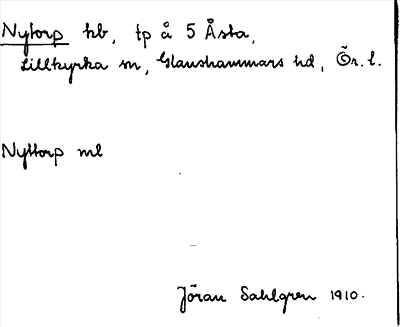 Nytorp hb, tp å 5 Åsta,
Lillkyrka sn, Glanshammars hd, Ör. l.
Nyttorp ml
Jöran Sahlgren 1910.